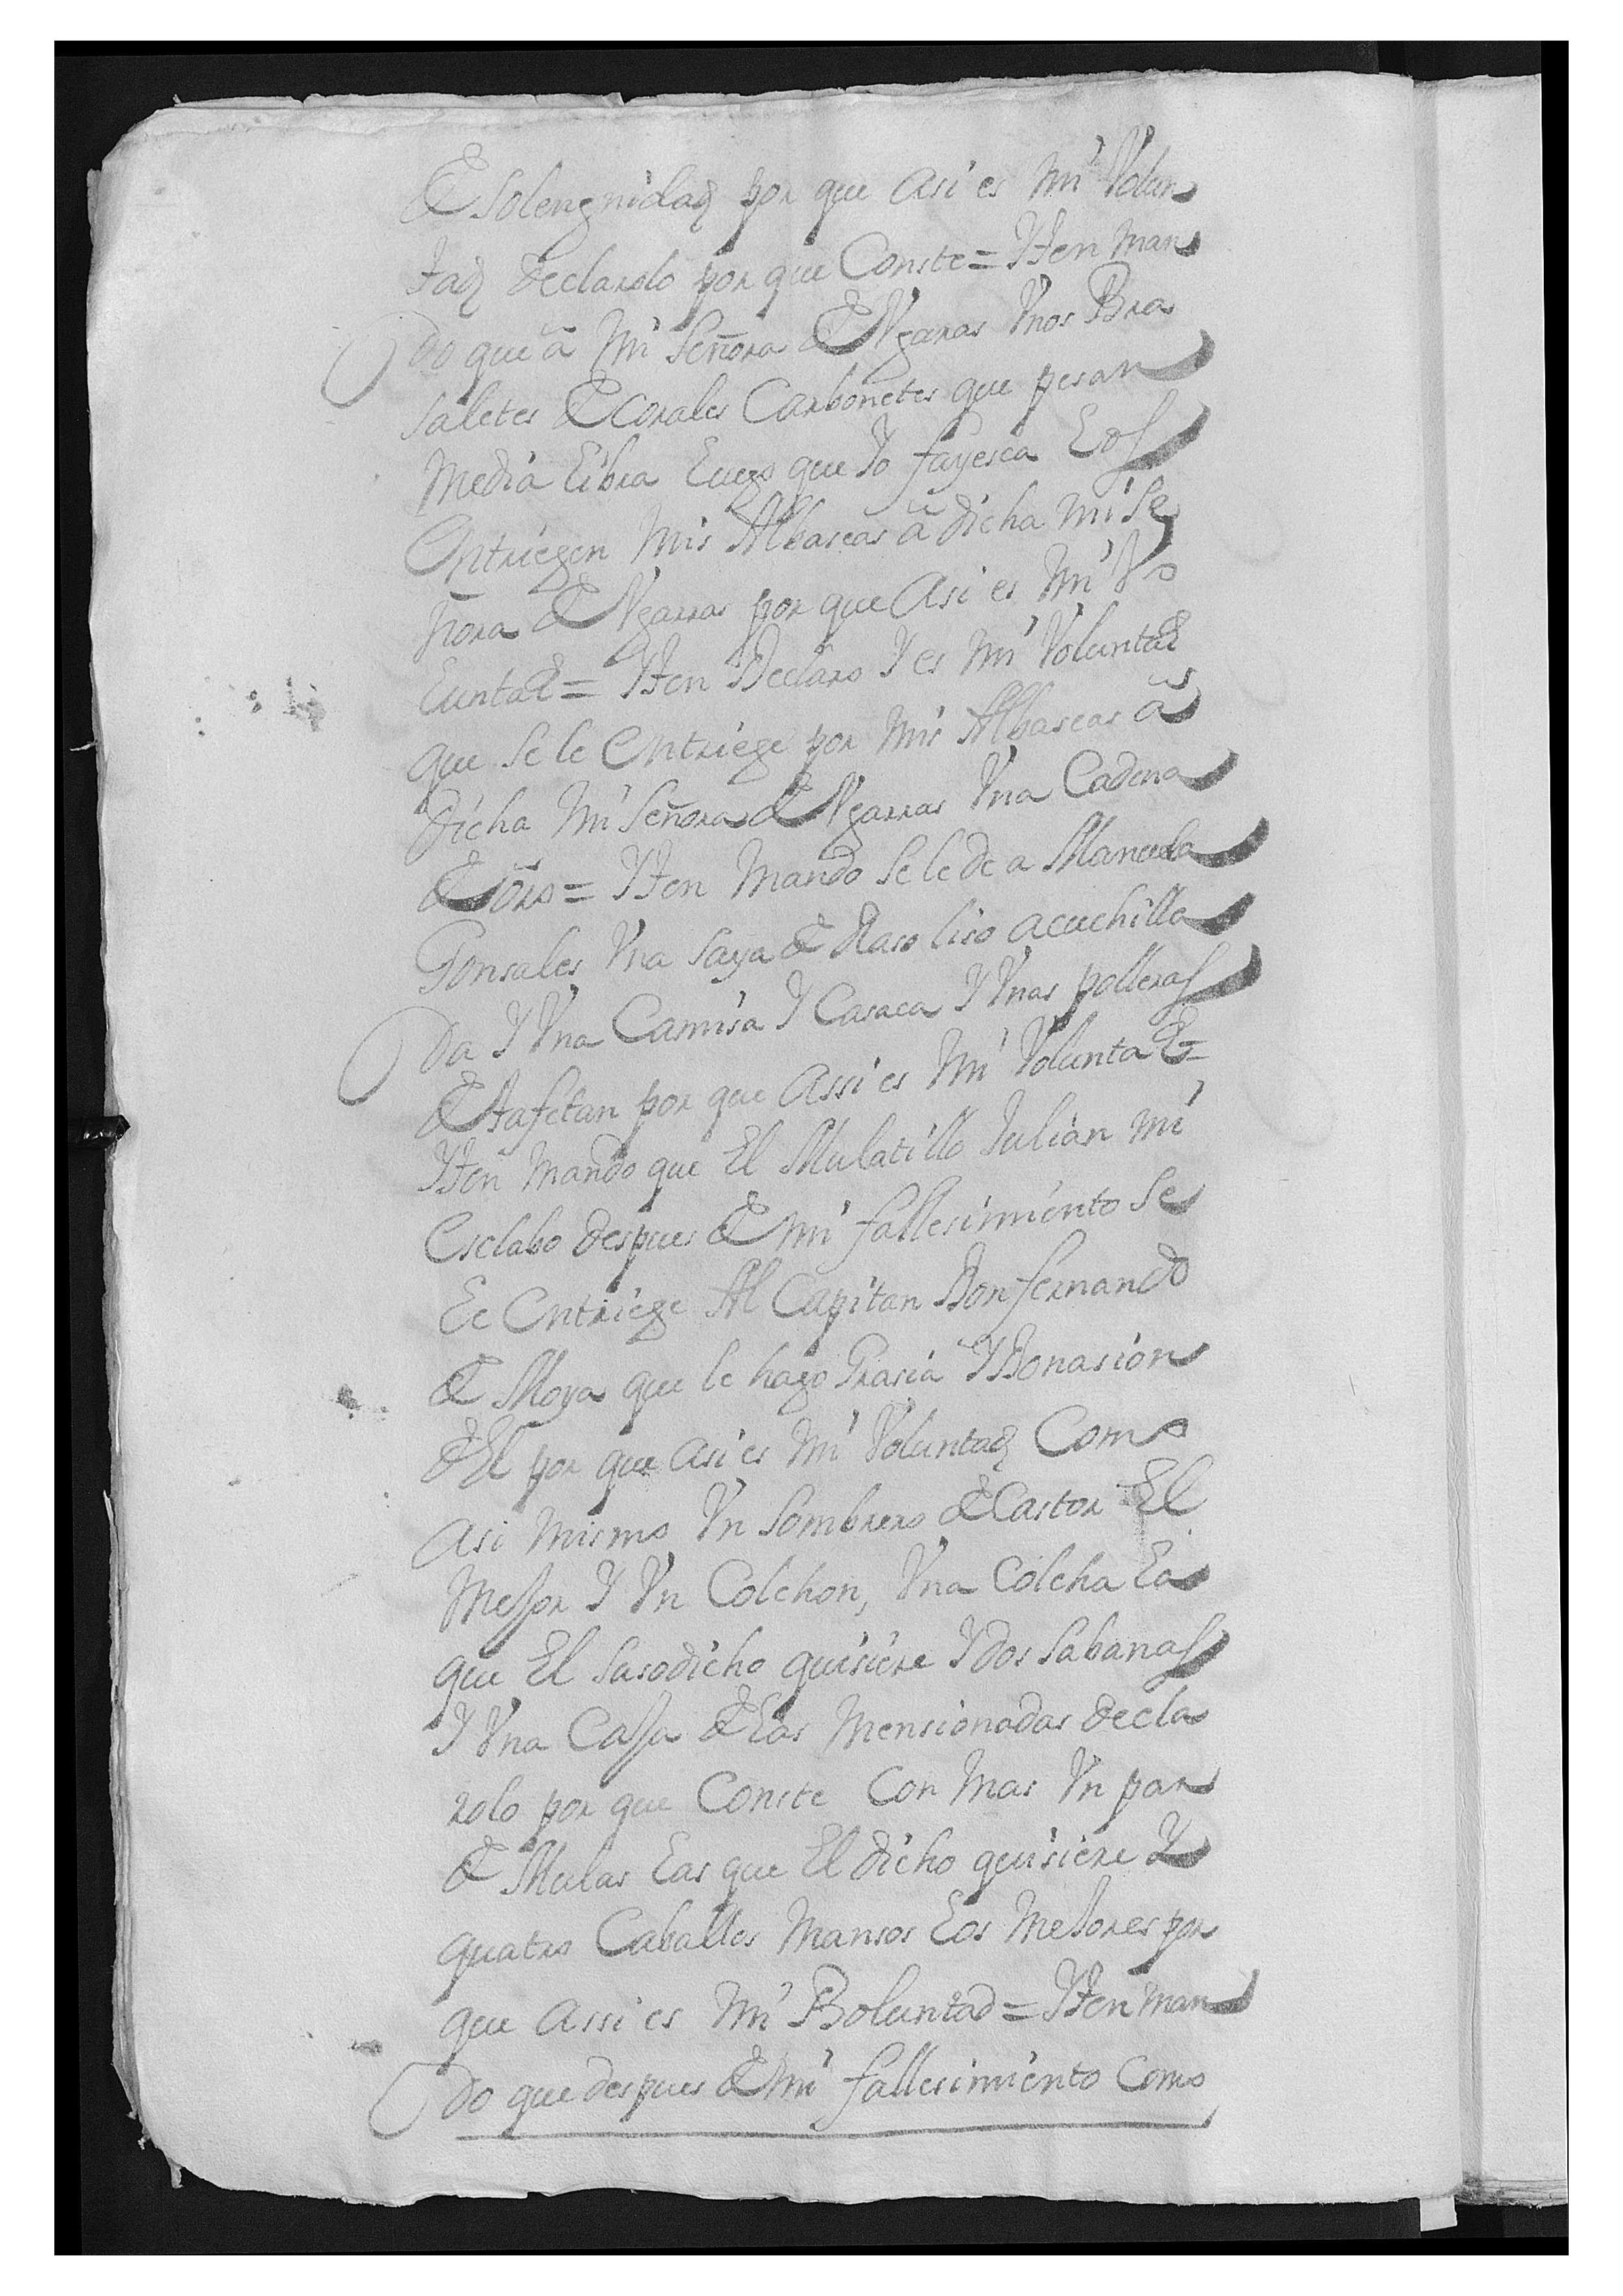 de solengnidad por que asi es mi volun
tad declarolo por que Conste = Yten man
do que â mi Señora de Vgaras Vnos Bra
saletes de corales Carbonetes que pesan
media libra luego que Yo fayesca los
Entriegen mis Albaseas â dicha mi Se
ñora de Vgarras por que Asi es mi Vo
luntad = Yten Declaro Y es mi Voluntad
que Se le Entriege por mis Albaseas â
dicha mi Señora de Vgarras Vna Cadena
de oro = Yten mando Se le de a Manuela
Gonsales Vna Saya de Raso liso acuchilla
da Y Vna Camisa Y Casaca Y Vnas polleras
de tafetan por que Assi es mi Voluntad =
Yten mando que El Mulatillo Julian mi
Esclabo despues de mi fallesimiento Se
le Entriege Al Capitan Don fernando
de Moya que le hago Grasia Y Donasion
del por que asi es mi Voluntad Como
asi mismo Vn Sombrero de Castor El
mejor Y Vn Colchon, Vna Colcha la
que El Susodicho quisiere Y dos Sabanas
Y Vna Caja de las mensionadas decla
rolo por que Conste Con mas Vn par
de Mulas las que El dicho quisiere Y
quatro Caballos mansos los mejores por
que assi es mi Boluntad = Yten man
do que despues de mi fallesimiento Como